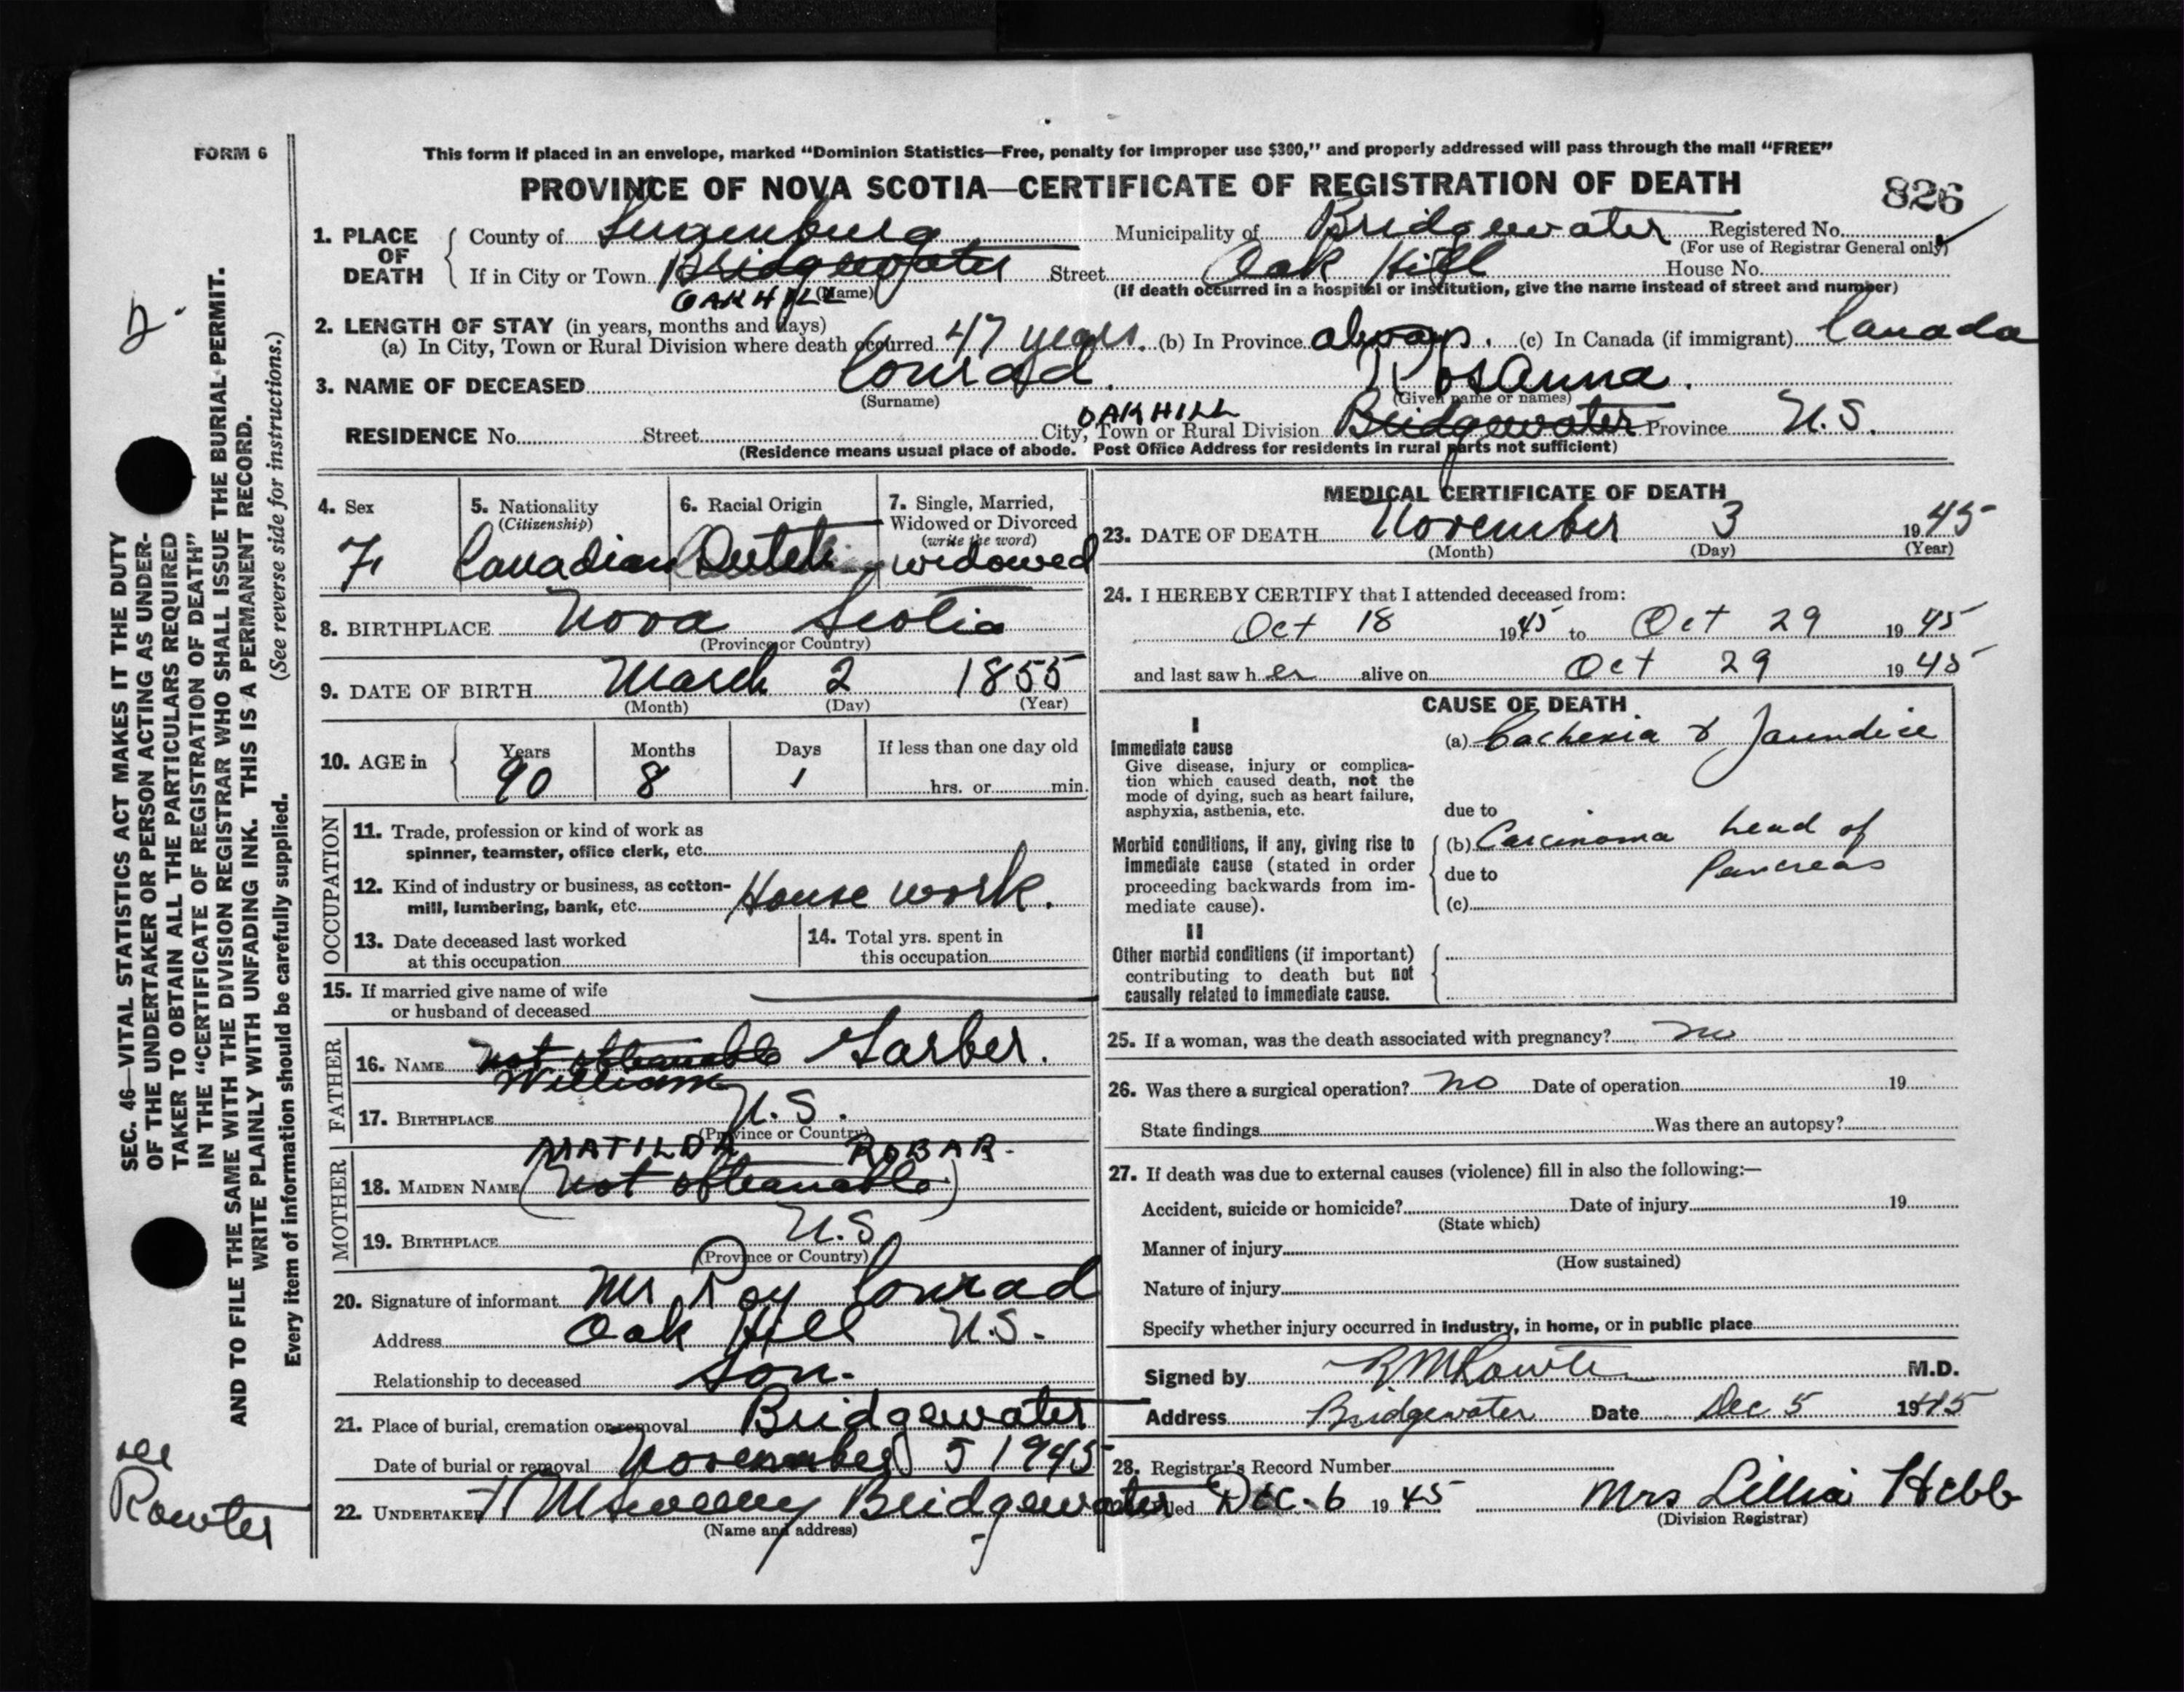 FORM 6
This form if placed in an envelope, marked "Dominion Statistics—Free, penalty for improper use $300," and properly addressed will pass through the mail "FREE"
PROVINCE OF NOVA SCOTIA—CERTIFICATE OF REGISTRATION OF DEATH
826
1. PLACE OF DEATH
County of Lunenburg Municipality of Bridgewater Registered No.
(For use of Registrar General only)
If in City or Town Bridgewater Street Oak Hill House No.
OAK HILL (Name) (If death occurred in a hospital or institution, give the name instead of street and number)
2. LENGTH OF STAY (in years, months and days)
(a) In City, Town or Rural Division where death occurred 47 years. (b) In Province always. (c) In Canada (if immigrant) Canada
3. NAME OF DECEASED Conrad. RosAnna.
(Surname) (Given name or names)
OAK HILL
RESIDENCE No. Street City, Town or Rural Division Bridgewater Province N.S.
(Residence means usual place of abode. Post Office Address for residents in rural parts not sufficient)
4. Sex
F
5. Nationality
(Citizenship)
Canadian
6. Racial Origin
Dutch
7. Single, Married,
Widowed or Divorced
(write the word)
widowed
8. BIRTHPLACE Nova Scotia
(Province or Country)
9. DATE OF BIRTH March 2 1855
(Month) (Day) (Year)
10. AGE in
Years Months Days If less than one day old
90 8 1 hrs. or min.
OCCUPATION
11. Trade, profession or kind of work as
spinner, teamster, office clerk, etc.
12. Kind of industry or business, as cotton-
mill, lumbering, bank, etc. House work.
13. Date deceased last worked
at this occupation
14. Total yrs. spent in
this occupation
15. If married give name of wife
or husband of deceased
FATHER
16. NAME not obtainable Garber.
William
17. BIRTHPLACE N.S.
(Province or Country)
MOTHER
MATILDA ROBAR.
18. MAIDEN NAME (not obtainable)
19. BIRTHPLACE N.S.
(Province or Country)
20. Signature of informant Mr Roy Conrad
Address Oak Hill N.S.
Relationship to deceased Son.
21. Place of burial, cremation or removal Bridgewater
Date of burial or removal November 5 1945
22. UNDERTAKER Bridgewater
(Name and address)
MEDICAL CERTIFICATE OF DEATH
23. DATE OF DEATH November 3 1945
(Month) (Day) (Year)
24. I HEREBY CERTIFY that I attended deceased from:
Oct 18 1945 to Oct 29 1945
and last saw her alive on Oct 29 1945
CAUSE OF DEATH
I
Immediate cause
Give disease, injury or complica-
tion which caused death, not the
mode of dying, such as heart failure,
asphyxia, asthenia, etc.
(a) Cachexia & Jaundice
due to
Morbid conditions, if any, giving rise to
immediate cause (stated in order
proceeding backwards from im-
mediate cause).
(b) Carcinoma head of
due to Pancreas
(c)
II
Other morbid conditions (if important)
contributing to death but not
causally related to immediate cause.
25. If a woman, was the death associated with pregnancy? no
26. Was there a surgical operation? no Date of operation 19
State findings Was there an autopsy?
27. If death was due to external causes (violence) fill in also the following:—
Accident, suicide or homicide? Date of injury 19
(State which)
Manner of injury
(How sustained)
Nature of injury
Specify whether injury occurred in industry, in home, or in public place
Signed by M.D.
Address Bridgewater Date Dec 5 1945
28. Registrar's Record Number
Filed Dec. 6 1945 Mrs Lillia Hebb
(Division Registrar)
SEC. 46—VITAL STATISTICS ACT MAKES IT THE DUTY
OF THE UNDERTAKER OR PERSON ACTING AS UNDER-
TAKER TO OBTAIN ALL THE PARTICULARS REQUIRED
IN THE "CERTIFICATE OF REGISTRATION OF DEATH"
AND TO FILE THE SAME WITH THE DIVISION REGISTRAR WHO SHALL ISSUE THE BURIAL PERMIT.
WRITE PLAINLY WITH UNFADING INK. THIS IS A PERMANENT RECORD.
(See reverse side for instructions.)
Every item of information should be carefully supplied.
2.
see
Rowter